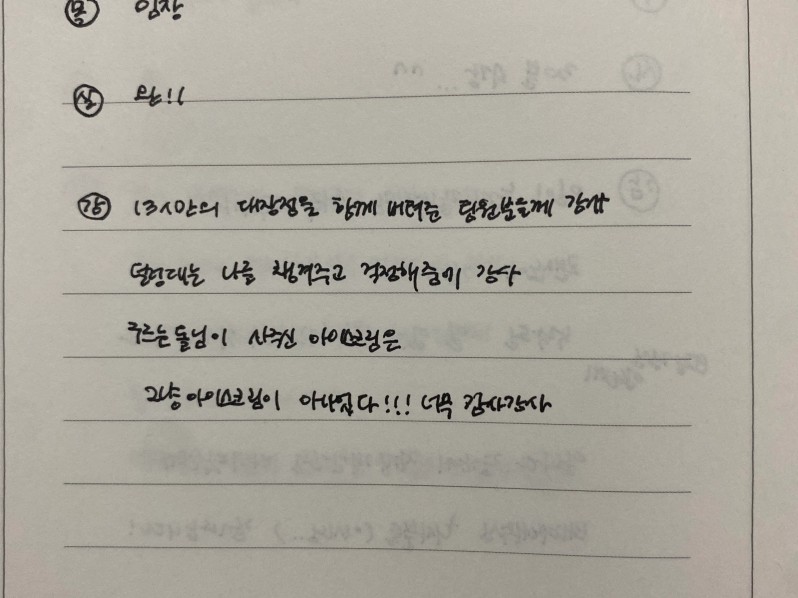 몸 입장
실 완!!
감 13시간의 대장정을 함께 버텨준 당원분들께 감사
덜렁대는 나를 챙겨주고 걱정해줌에 감사
구르는돌님이 사주신 아이스크림은
그냥 아이스크림이 아니었다!!! 너무 감사감사